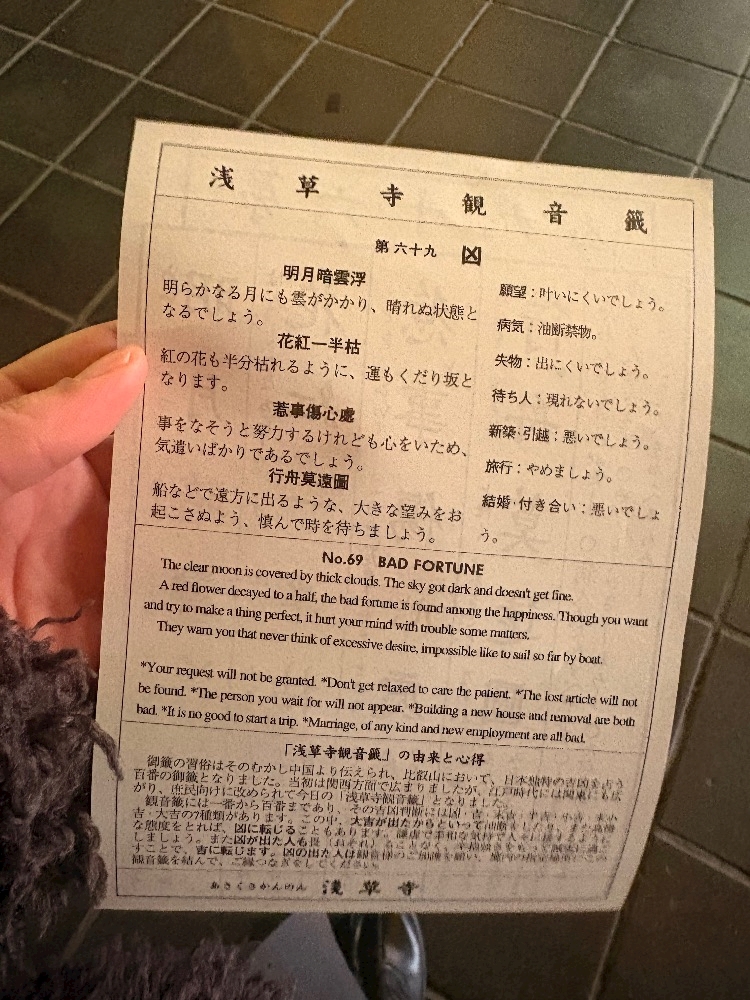 浅草寺観音籤
第六十九 凶
明月暗雲浮
明らかなる月にも雲がかかり、晴れぬ状態と
なるでしょう。
花紅一半枯
紅の花も半分枯れるように、運もくだり坂と
なります。
惹事傷心處
事をなそうと努力するけれども心をいため、
気遣いばかりであるでしょう。
行舟莫遠圖
船などで遠方に出るような、大きな望みをお
起こさぬよう、慎んで時を待ちましょう。
願望：叶いにくいでしょう。
病気：油断禁物。
失物：出にくいでしょう。
待ち人：現れないでしょう。
新築・引越：悪いでしょう。
旅行：やめましょう。
結婚・付き合い：悪いでしょ
う。
No.69 BAD FORTUNE
The clear moon is covered by thick clouds. The sky got dark and doesn't get fine.
A red flower decayed to a half, the bad fortune is found among the happiness. Though you want
and try to make a thing perfect, it hurt your mind with trouble some matters.
They warn you that never think of excessive desire, impossible like to sail so far by boat.
*Your request will not be granted. *Don't get relaxed to care the patient. *The lost article will not
be found. *The person you wait for will not appear. *Building a new house and removal are both
bad. *It is no good to start a trip. *Marriage, of any kind and new employment are all bad.
「浅草寺観音籤」の由来と心得
御籤の習俗はそのむかし中国より伝えられ、比叡山において、日本独特の吉凶を占う
百番の御籤となりました。当初は関西方面で広まりましたが、江戸時代には関東にも広
がり、庶民向けに改められて今日の「浅草寺観音籤」となりました。
観音籤には一番から百番まであり、その吉凶判断には凶・吉・末吉・半吉・小吉・末小
吉・大吉の7種類があります。この中、大吉が出たからといって油断をしたり、また高慢
な態度をとれば、凶に転じることもあります。謙虚で柔和な気持で人々に
しましょう。また凶が出た人も畏（おそれ）ることなく、辛抱強さをもって
すことで、吉に転じます。凶の出た人は観音様のご加護を願い、
観音籤を結んで、ご縁つなぎをしてください。
あさくさかんのん 浅草寺